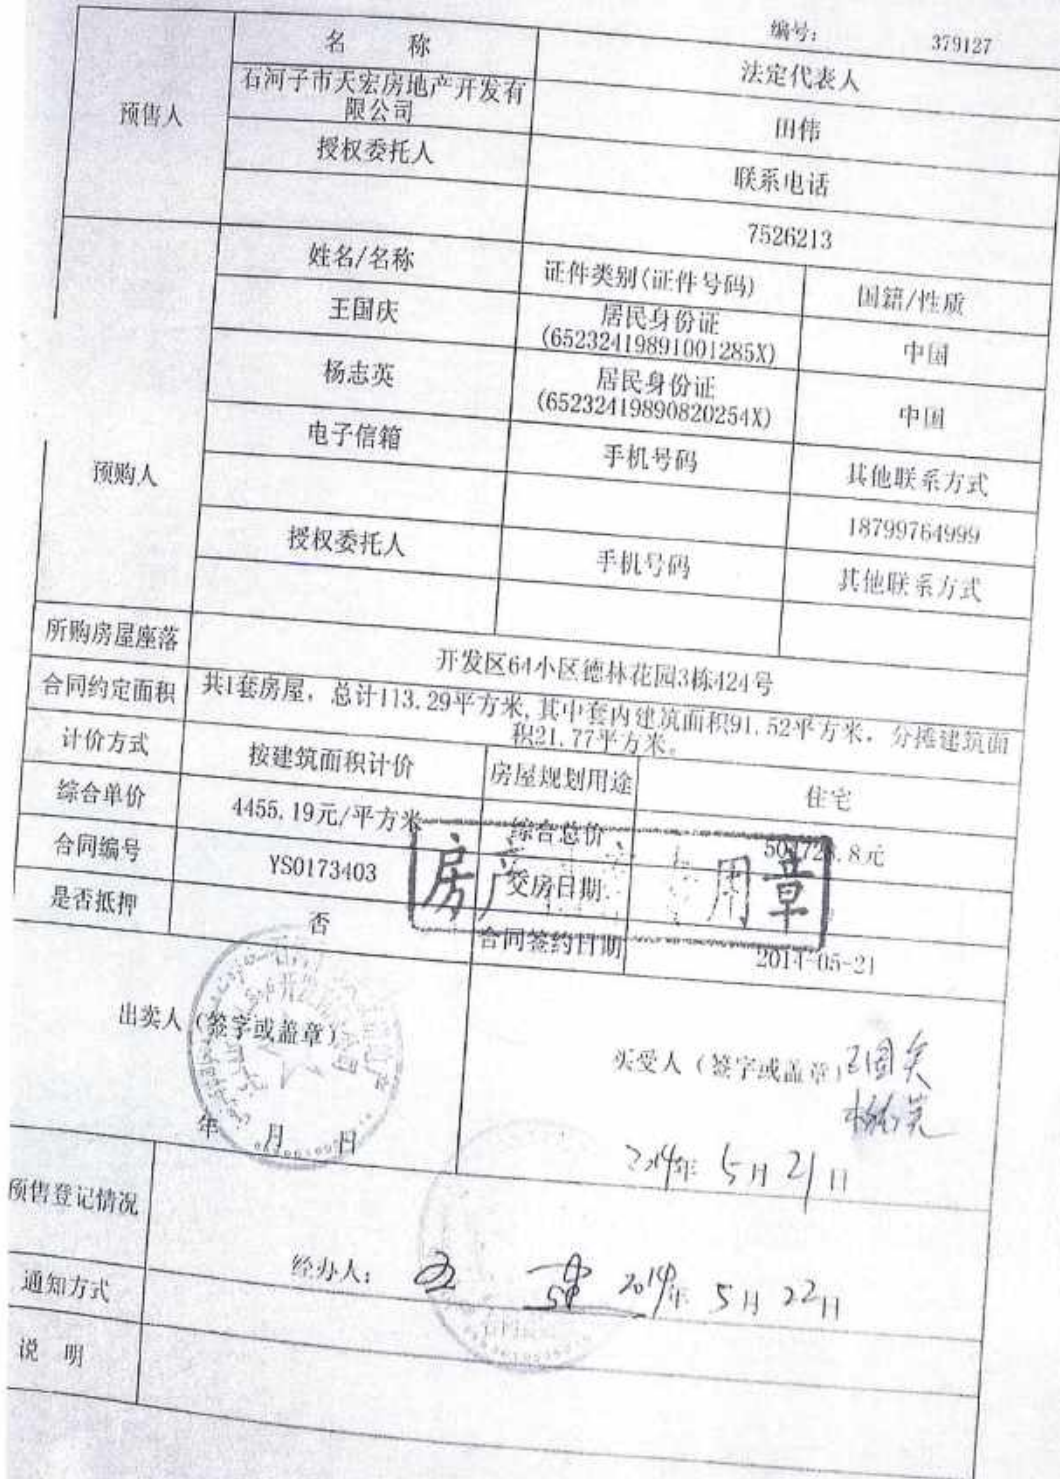 编号： 379127
预售人
名 称
法定代表人
石河子市天宏房地产开发有
限公司
田伟
授权委托人
联系电话
7526213
预购人
姓名/名称
证件类别(证件号码)
国籍/性质
王国庆
居民身份证
(65232419891001285X)
中国
杨志英
居民身份证
(65232419890820254X)
中国
电子信箱
手机号码
其他联系方式
18799764999
授权委托人
手机号码
其他联系方式
所购房屋座落
开发区64小区德林花园3栋424号
合同约定面积
共1套房屋，总计113.29平方米,其中套内建筑面积91.52平方米，分摊建筑面
积21.77平方米。
计价方式
按建筑面积计价
房屋规划用途
住宅
综合单价
4455.19元/平方米
综合总价
合同编号
YS0173403
交房日期
房产 用章
是否抵押
否
合同签约日期
2014-05-21
出卖人（签字或盖章）
年 月 日
买受人（签字或盖章）
2014年 5月 21日
预售登记情况
经办人：
2014年 5月 22日
通知方式
说 明